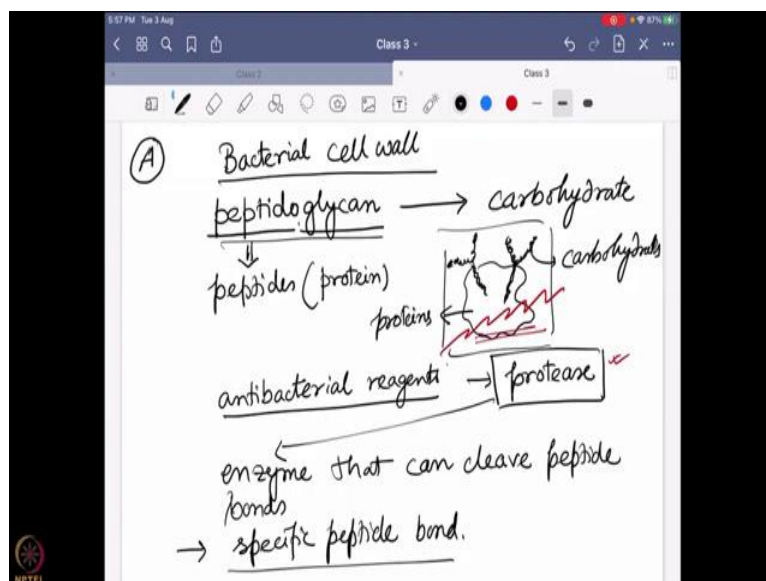 5:57 PM Tue 3 Aug
87%
Class 3
Class 2
Class 3
A
Bacterial cell wall
peptidoglycan → carbohydrate
peptides (protein)
carbohydrates
proteins
antibacterial reagents → protease
enzyme that can cleave peptide
bonds
→ specific peptide bond.
NPTEL